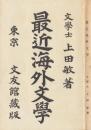 文學士 上田敏著
最近海外文學
東京 文友館藏版